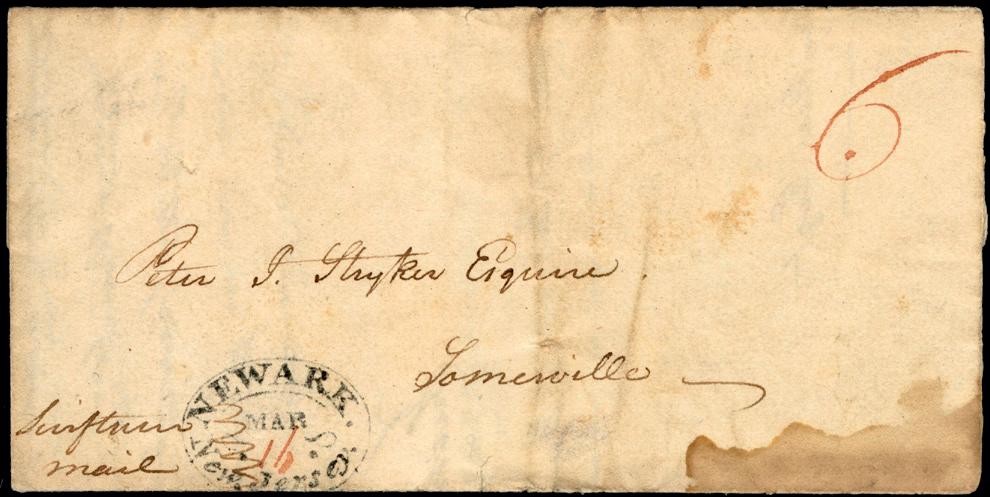 6
Peter I. Stryker Esquire.
Somerville
Swiftsure
mail
NEWARK.
MAR
16
New Jersey.